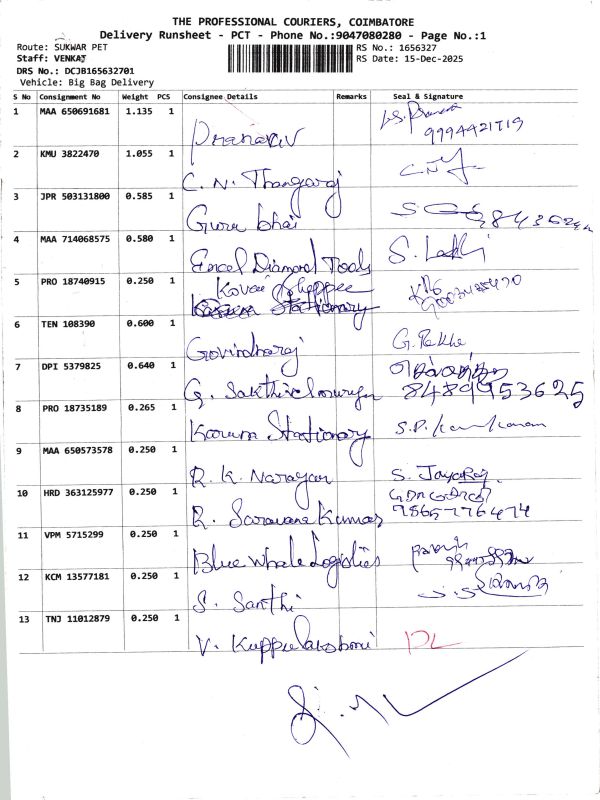 THE PROFESSIONAL COURIERS, COIMBATORE
Delivery Runsheet - PCT - Phone No.:9047080280 - Page No.:1
Route: SUKWAR PET RS No.: 1656327
Staff: VENKAT RS Date: 15-Dec-2025
DRS No.: DCJB165632701
Vehicle: Big Bag Delivery
S No Consignment No Weight PCS Consignee Details Remarks Seal & Signature
1 MAA 650691681 1.135 1
Pranav 9994421719
2 KMU 3822470 1.055 1
C. N. Thangaraj
3 JPR 503131800 0.585 1
Guru bhai
4 MAA 714068575 0.580 1
Excel Diamond Tools S. Lakhi
5 PRO 18740915 0.250 1 Kovai Shoppee
Stationary
6 TEN 108390 0.600 1
Govindharaj G.
7 DPI 5379825 0.640 1
G. 8489953625
8 PRO 18735189 0.265 1
Karum Stationary S.P.
9 MAA 650573578 0.250 1
R. K. Narayan S. Jayaraj
10 HRD 363125977 0.250 1
R. Saravana Kumar 9865776474
11 VPM 5715299 0.250 1
Blue Whale Logistics
12 KCM 13577181 0.250 1
S. Santhi
13 TNJ 11012879 0.250 1
V. Kuppulakshmi DL